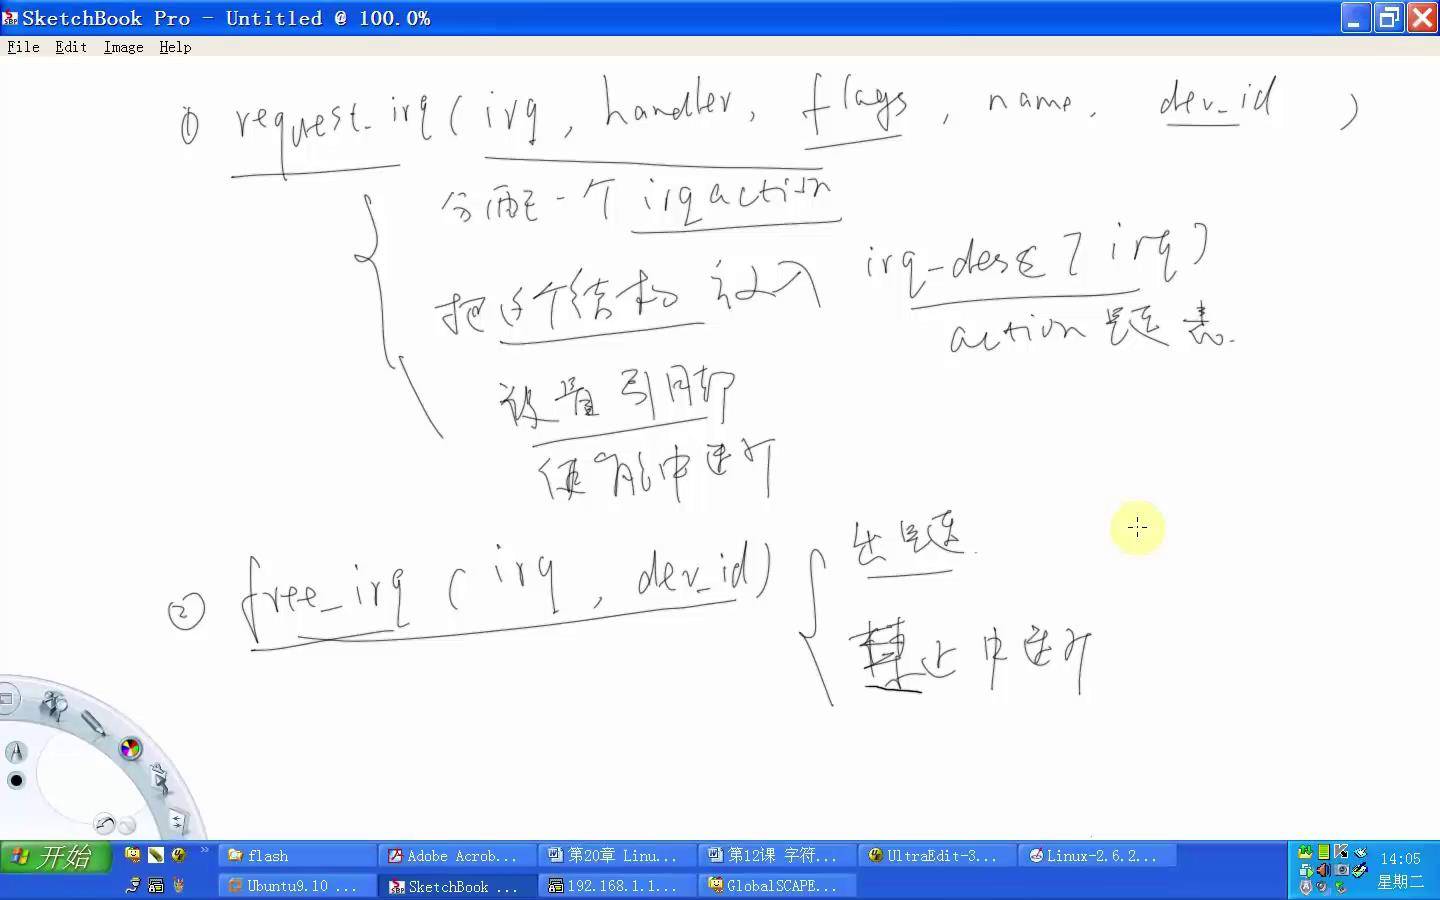 SketchBook Pro - Untitled @ 100.0%
File Edit Image Help
① request_irq(irq, handler, flags, name, dev_id)
分配一个 irqaction
把这个结构放入 irq_desc[irq]
action链表.
设置引脚
使能中断
② free_irq(irq, dev_id)
出链.
禁止中断
开始
flash
Adobe Acrob...
第20章 Linu...
第12课 字符...
UltraEdit-3...
Linux-2.6.2...
14:05
Ubuntu9.10 ...
SketchBook ...
192.168.1.1...
GlobalSCAPE...
星期二